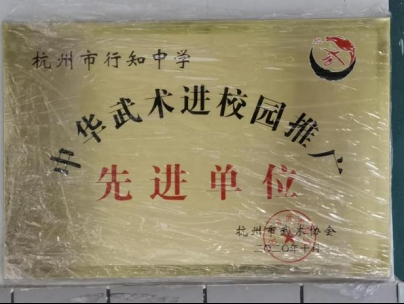 杭州市行知中学
中华武术进校园推广
先进单位
杭州市武术协会
二〇二〇年十月